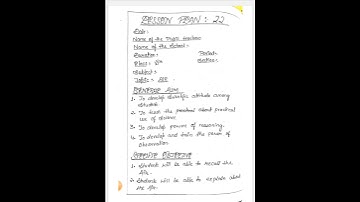 LESSON PLAN : 22
Date:
Name of the Pupil teacher:
Name of the School:
Duration: Period:
Class: Section:
Subject:
Topic: Air
General Aim
1. To develop scientific attitude among students.
2. To teach the practical about practical use of science
3. To develop power of reasoning.
4. To develop and train the power of observation
Specific Objective
1. Students will be able to recall the Air.
2. Students will be able to explain about the Air.